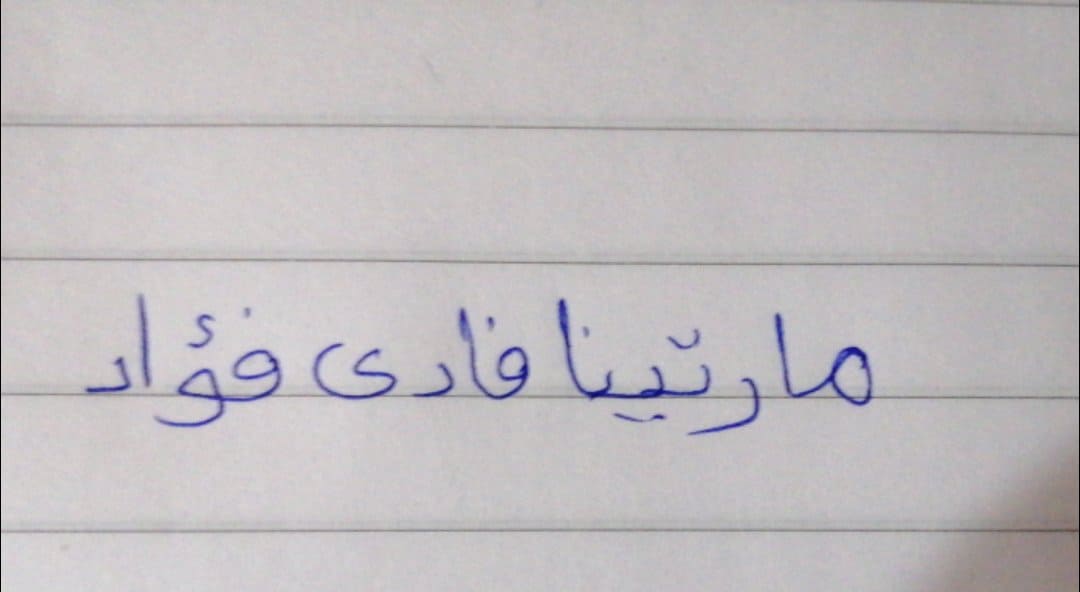 مارتينا فادى فؤاد